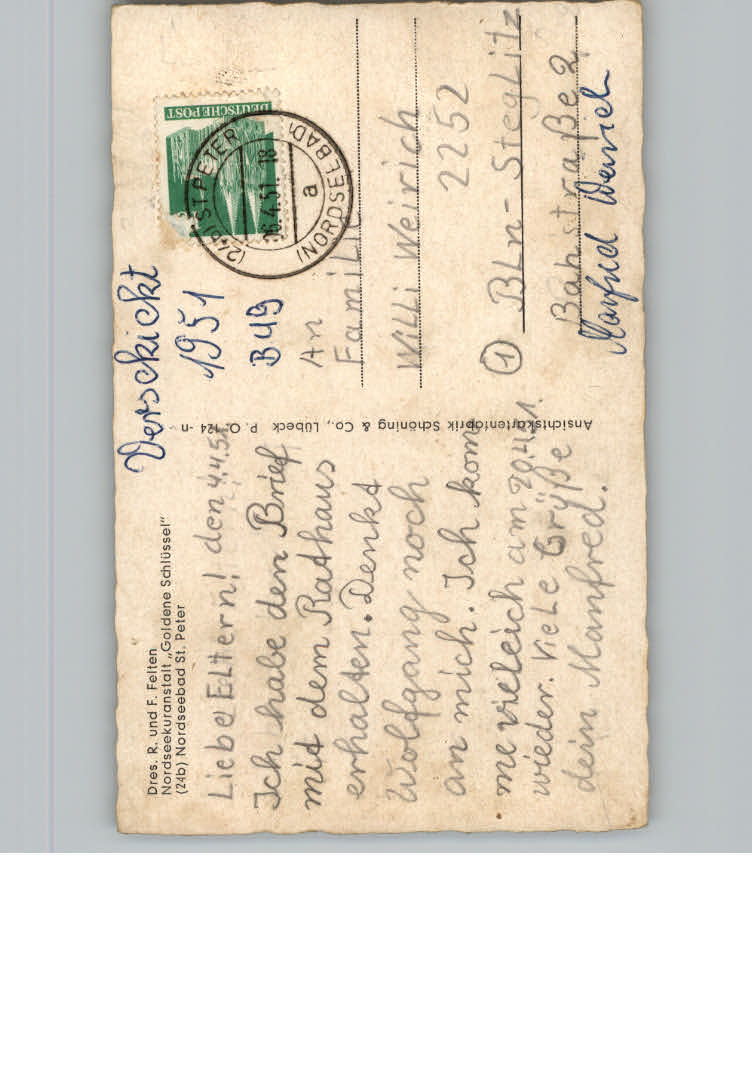 Dres. R. und F. Felten
Nordseekuranstalt „Goldene Schlüssel"
(24b) Nordseebad St. Peter
Liebe Eltern! den 4.4.51
Ich habe den Brief
mit dem Rathaus
erhalten. Denkt
Wolfgang noch
an mich. Ich kom
me vieleich am 20.4.51.
wieder. Viele Grüße
dein Manfred.
Ansichtskartenfabrik Schöning & Co., Lübeck P. O. 124 -n-
Verschickt
1951
B49
DEUTSCHE POST
(24b) ST. PETER
06.4.51. 18
a
(NORDSEEBAD)
An
Familie
Willi Weirich
2252
① Bln-Steglitz
Bahstraße 2
Manfred Weirich